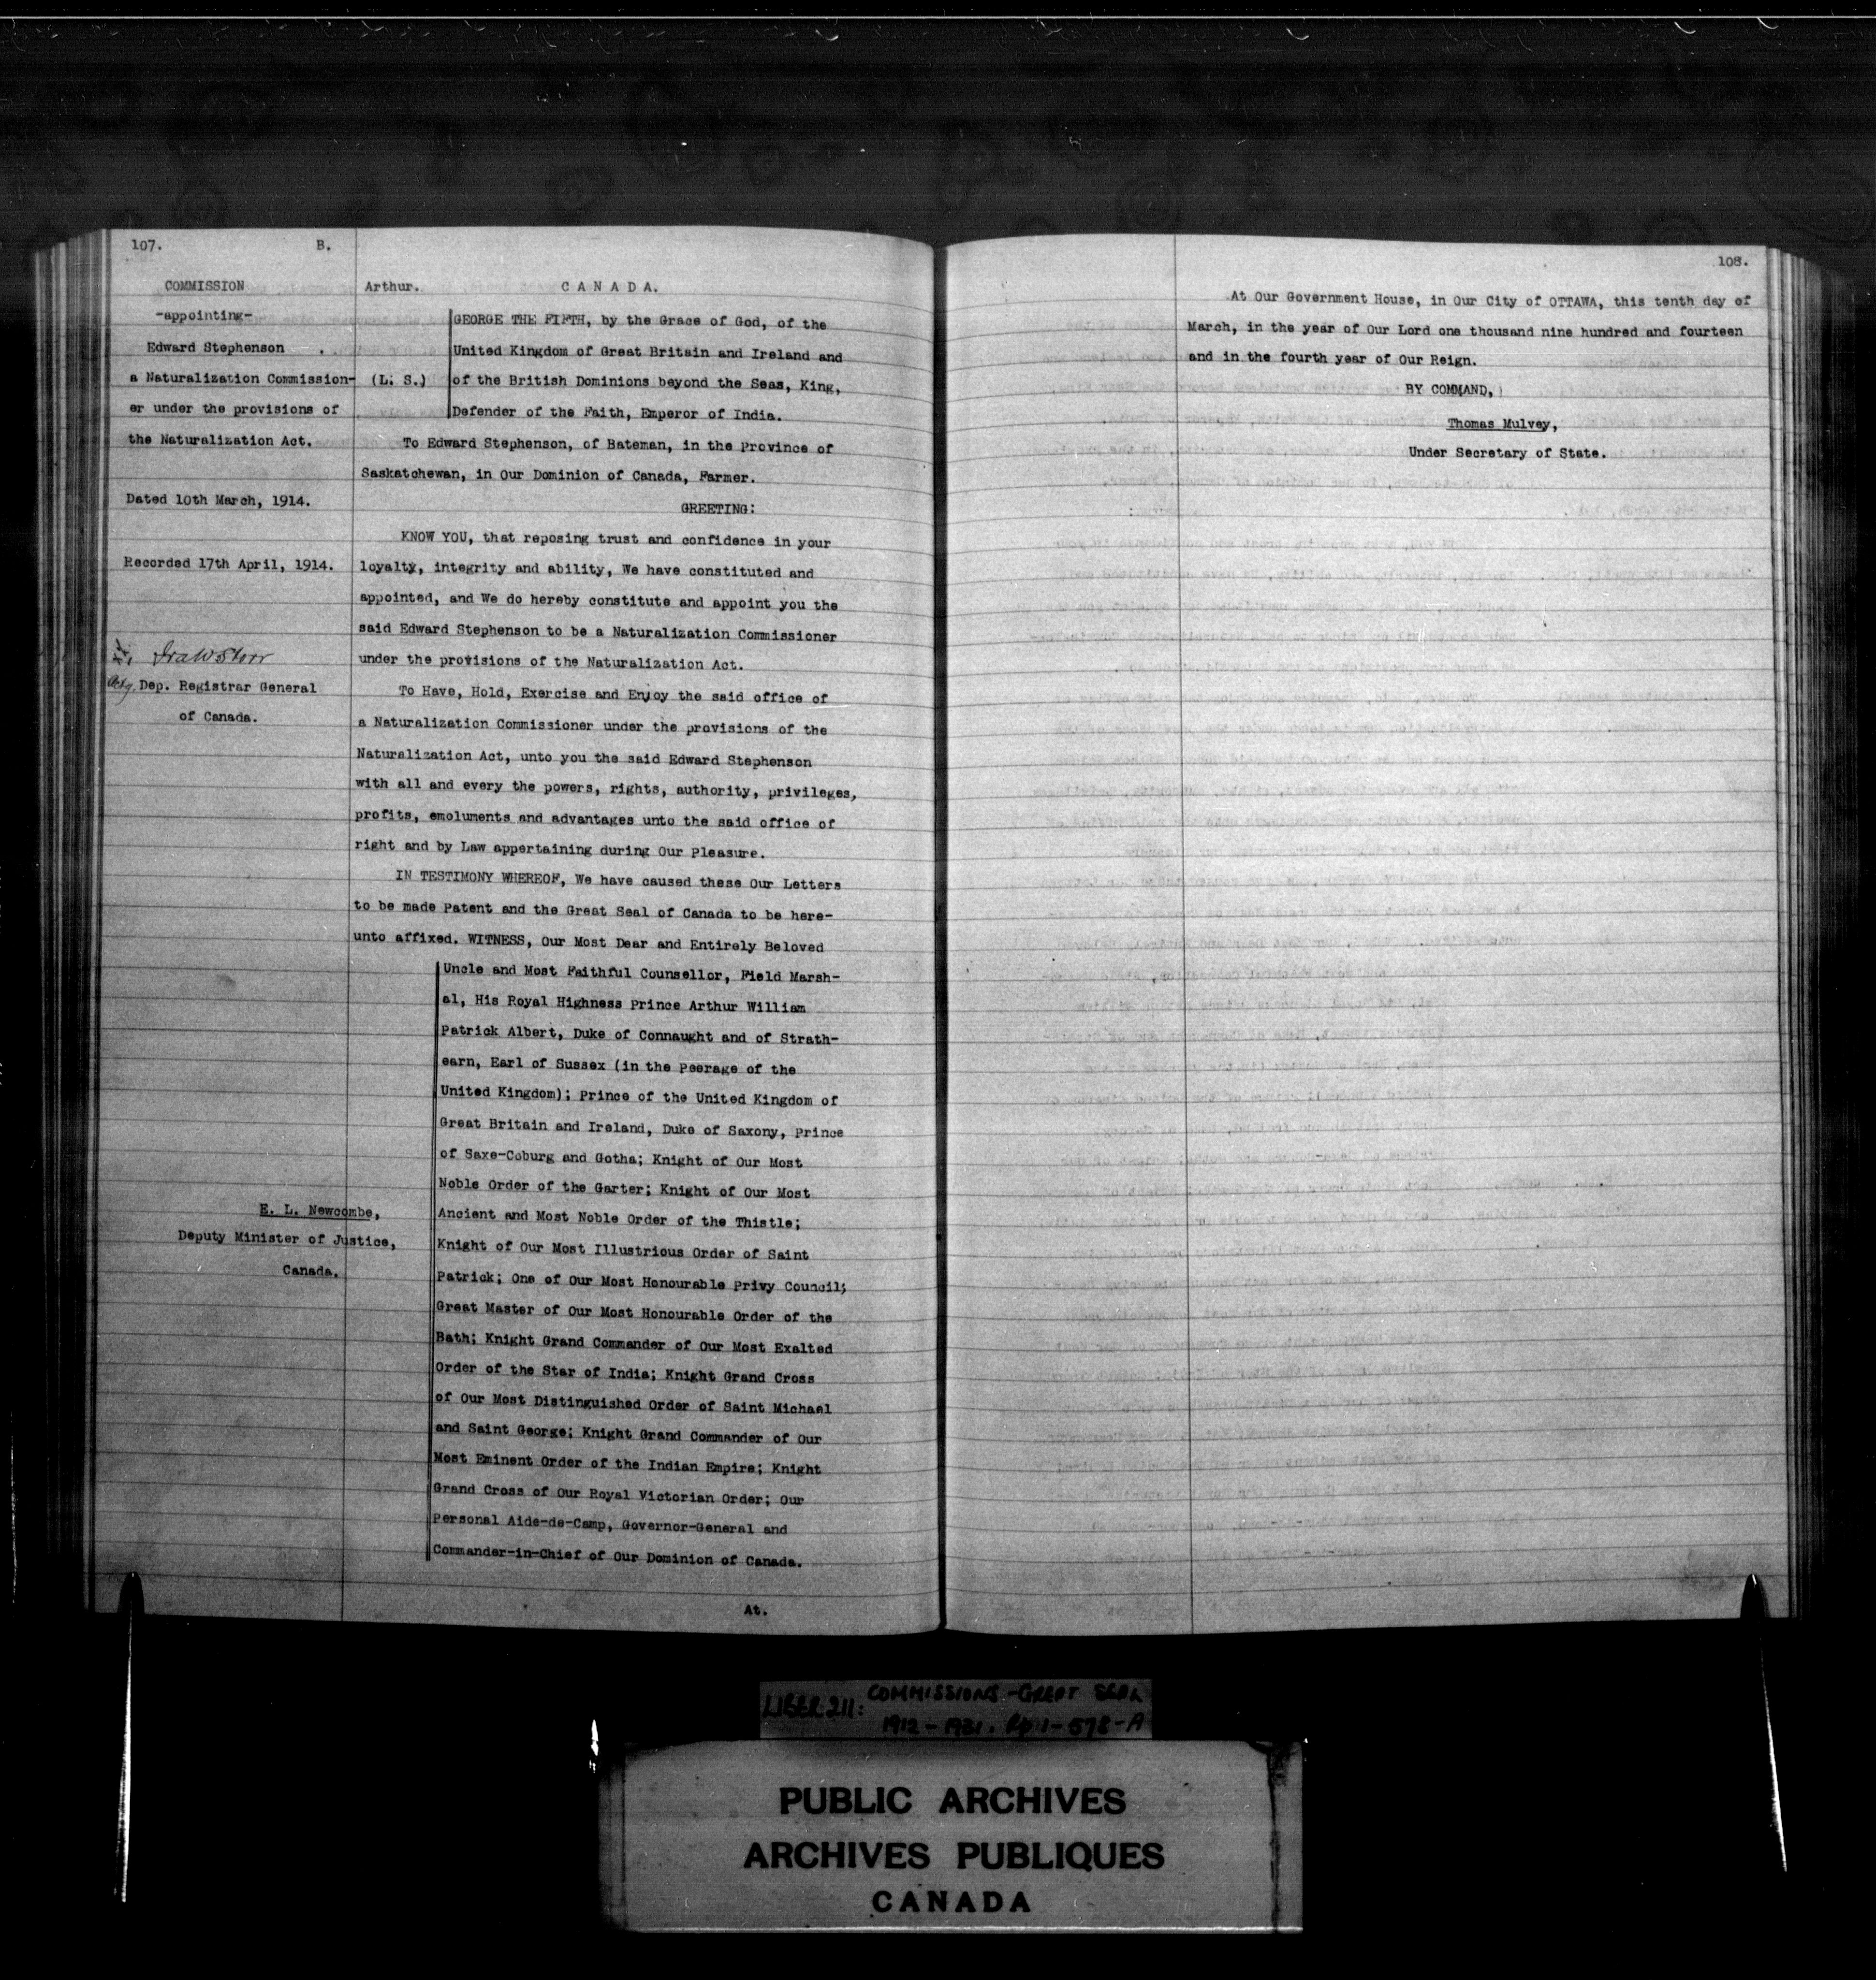 107.
B.
COMMISSION
-appointing-
Edward Stephenson
a Naturalization Commission-
er under the provisions of
the Naturalization Act.
Dated 10th March, 1914.
Recorded 17th April, 1914.
Actg. Dep. Registrar General
of Canada.
E. L. Newcombe,
Deputy Minister of Justice,
Canada.
Arthur.
C A N A D A.
(L. S.)
GEORGE THE FIFTH, by the Grace of God, of the
United Kingdom of Great Britain and Ireland and
of the British Dominions beyond the Seas, King,
Defender of the Faith, Emperor of India.
To Edward Stephenson, of Bateman, in the Province of
Saskatchewan, in Our Dominion of Canada, Farmer.
GREETING:
KNOW YOU, that reposing trust and confidence in your
loyalty, integrity and ability, We have constituted and
appointed, and We do hereby constitute and appoint you the
said Edward Stephenson to be a Naturalization Commissioner
under the provisions of the Naturalization Act.
To Have, Hold, Exercise and Enjoy the said office of
a Naturalization Commissioner under the provisions of the
Naturalization Act, unto you the said Edward Stephenson
with all and every the powers, rights, authority, privileges,
profits, emoluments and advantages unto the said office of
right and by Law appertaining during Our Pleasure.
IN TESTIMONY WHEREOF, We have caused these Our Letters
to be made Patent and the Great Seal of Canada to be here-
unto affixed. WITNESS, Our Most Dear and Entirely Beloved
Uncle and Most Faithful Counsellor, Field Marsh-
al, His Royal Highness Prince Arthur William
Patrick Albert, Duke of Connaught and of Strath-
earn, Earl of Sussex (in the Peerage of the
United Kingdom); Prince of the United Kingdom of
Great Britain and Ireland, Duke of Saxony, Prince
of Saxe-Coburg and Gotha; Knight of Our Most
Noble Order of the Garter; Knight of Our Most
Ancient and Most Noble Order of the Thistle;
Knight of Our Most Illustrious Order of Saint
Patrick; One of Our Most Honourable Privy Council;
Great Master of Our Most Honourable Order of the
Bath; Knight Grand Commander of Our Most Exalted
Order of the Star of India; Knight Grand Cross
of Our Most Distinguished Order of Saint Michael
and Saint George; Knight Grand Commander of Our
Most Eminent Order of the Indian Empire; Knight
Grand Cross of Our Royal Victorian Order; Our
Personal Aide-de-Camp, Governor-General and
Commander-in-Chief of Our Dominion of Canada.
At.
108.
At Our Government House, in Our City of OTTAWA, this tenth day of
March, in the year of Our Lord one thousand nine hundred and fourteen
and in the fourth year of Our Reign.
BY COMMAND,
Thomas Mulvey,
Under Secretary of State.
LIBER 211: COMMISSIONS - GREAT SEAL
1912 - 1931. Pp 1-578-A
PUBLIC ARCHIVES
ARCHIVES PUBLIQUES
CANADA